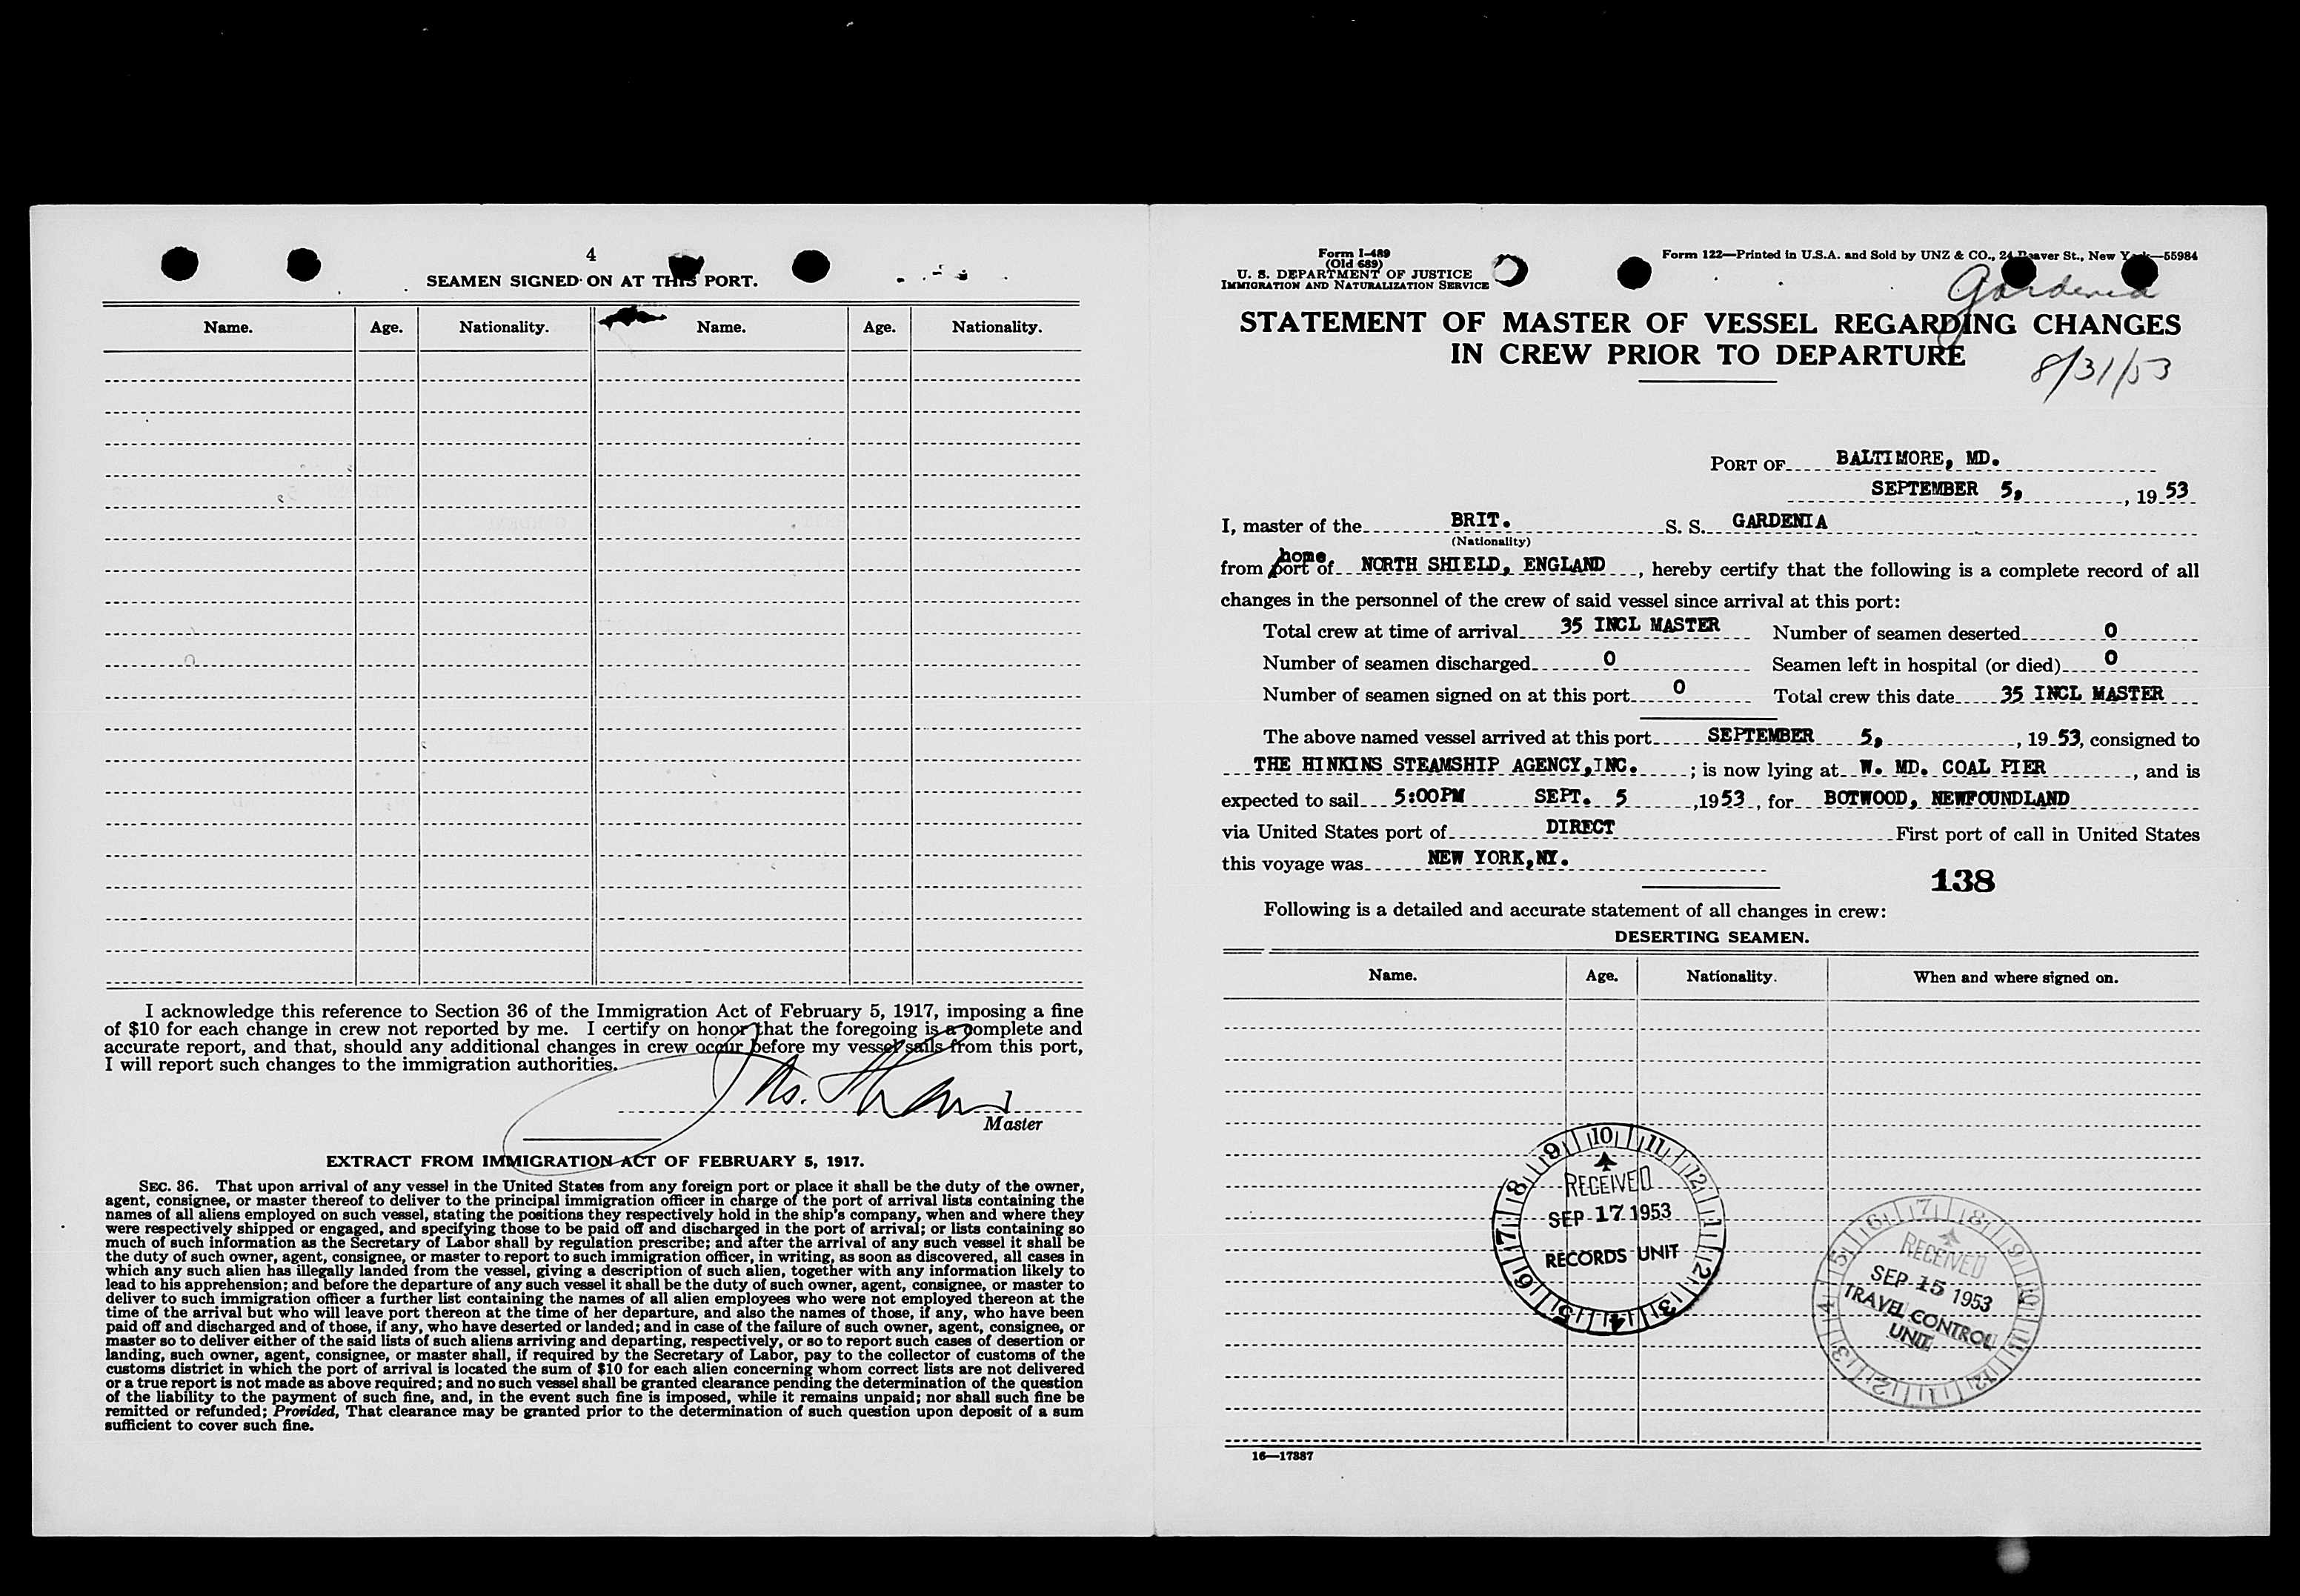 4
SEAMEN SIGNED ON AT THIS PORT.
Name. Age. Nationality. Name. Age. Nationality.
I acknowledge this reference to Section 36 of the Immigration Act of February 5, 1917, imposing a fine
of $10 for each change in crew not reported by me. I certify on honor that the foregoing is a complete and
accurate report, and that, should any additional changes in crew occur before my vessel sails from this port,
I will report such changes to the immigration authorities.
Master
EXTRACT FROM IMMIGRATION ACT OF FEBRUARY 5, 1917.
SEC. 36. That upon arrival of any vessel in the United States from any foreign port or place it shall be the duty of the owner,
agent, consignee, or master thereof to deliver to the principal immigration officer in charge of the port of arrival lists containing the
names of all aliens employed on such vessel, stating the positions they respectively hold in the ship's company, when and where they
were respectively shipped or engaged, and specifying those to be paid off and discharged in the port of arrival; or lists containing so
much of such information as the Secretary of Labor shall by regulation prescribe; and after the arrival of any such vessel it shall be
the duty of such owner, agent, consignee, or master to report to such immigration officer, in writing, as soon as discovered, all cases in
which any such alien has illegally landed from the vessel, giving a description of such alien, together with any information likely to
lead to his apprehension; and before the departure of any such vessel it shall be the duty of such owner, agent, consignee, or master to
deliver to such immigration officer a further list containing the names of all alien employees who were not employed thereon at the
time of the arrival but who will leave port thereon at the time of her departure, and also the names of those, if any, who have been
paid off and discharged and of those, if any, who have deserted or landed; and in case of the failure of such owner, agent, consignee, or
master so to deliver either of the said lists of such aliens arriving and departing, respectively, or so to report such cases of desertion or
landing, such owner, agent, consignee, or master shall, if required by the Secretary of Labor, pay to the collector of customs of the
customs district in which the port of arrival is located the sum of $10 for each alien concerning whom correct lists are not delivered
or a true report is not made as above required; and no such vessel shall be granted clearance pending the determination of the question
of the liability to the payment of such fine, and, in the event such fine is imposed, while it remains unpaid; nor shall such fine be
remitted or refunded; Provided, That clearance may be granted prior to the determination of such question upon deposit of a sum
sufficient to cover such fine.
Form I-489
(Old 689)
U. S. DEPARTMENT OF JUSTICE
IMMIGRATION AND NATURALIZATION SERVICE
Form 122—Printed in U.S.A. and Sold by UNZ & CO., 24 Beaver St., New York—55984
Gardenia
STATEMENT OF MASTER OF VESSEL REGARDING CHANGES
IN CREW PRIOR TO DEPARTURE
8/31/53
PORT OF BALTIMORE, MD.
SEPTEMBER 5, , 19 53
I, master of the BRIT. S. S. GARDENIA
(Nationality)
home
from port of NORTH SHIELD, ENGLAND , hereby certify that the following is a complete record of all
changes in the personnel of the crew of said vessel since arrival at this port:
Total crew at time of arrival 35 INCL MASTER Number of seamen deserted 0
Number of seamen discharged 0 Seamen left in hospital (or died) 0
Number of seamen signed on at this port 0 Total crew this date 35 INCL MASTER
The above named vessel arrived at this port SEPTEMBER 5, , 19 53, consigned to
THE HINKINS STEAMSHIP AGENCY,INC. ; is now lying at W. MD. COAL PIER , and is
expected to sail 5:00PM SEPT. 5 ,1953 , for BOTWOOD, NEWFOUNDLAND
via United States port of DIRECT First port of call in United States
this voyage was NEW YORK,NY.
138
Following is a detailed and accurate statement of all changes in crew:
DESERTING SEAMEN.
Name. Age. Nationality. When and where signed on.
9 10 11 12 1 2 3 4 5 6 7 8
RECEIVED
SEP 17 1953
RECORDS UNIT
5 6 7 8 9 10 11 12 1 2 3 4
RECEIVED
SEP 15 1953
TRAVEL CONTROL
UNIT
16—17887